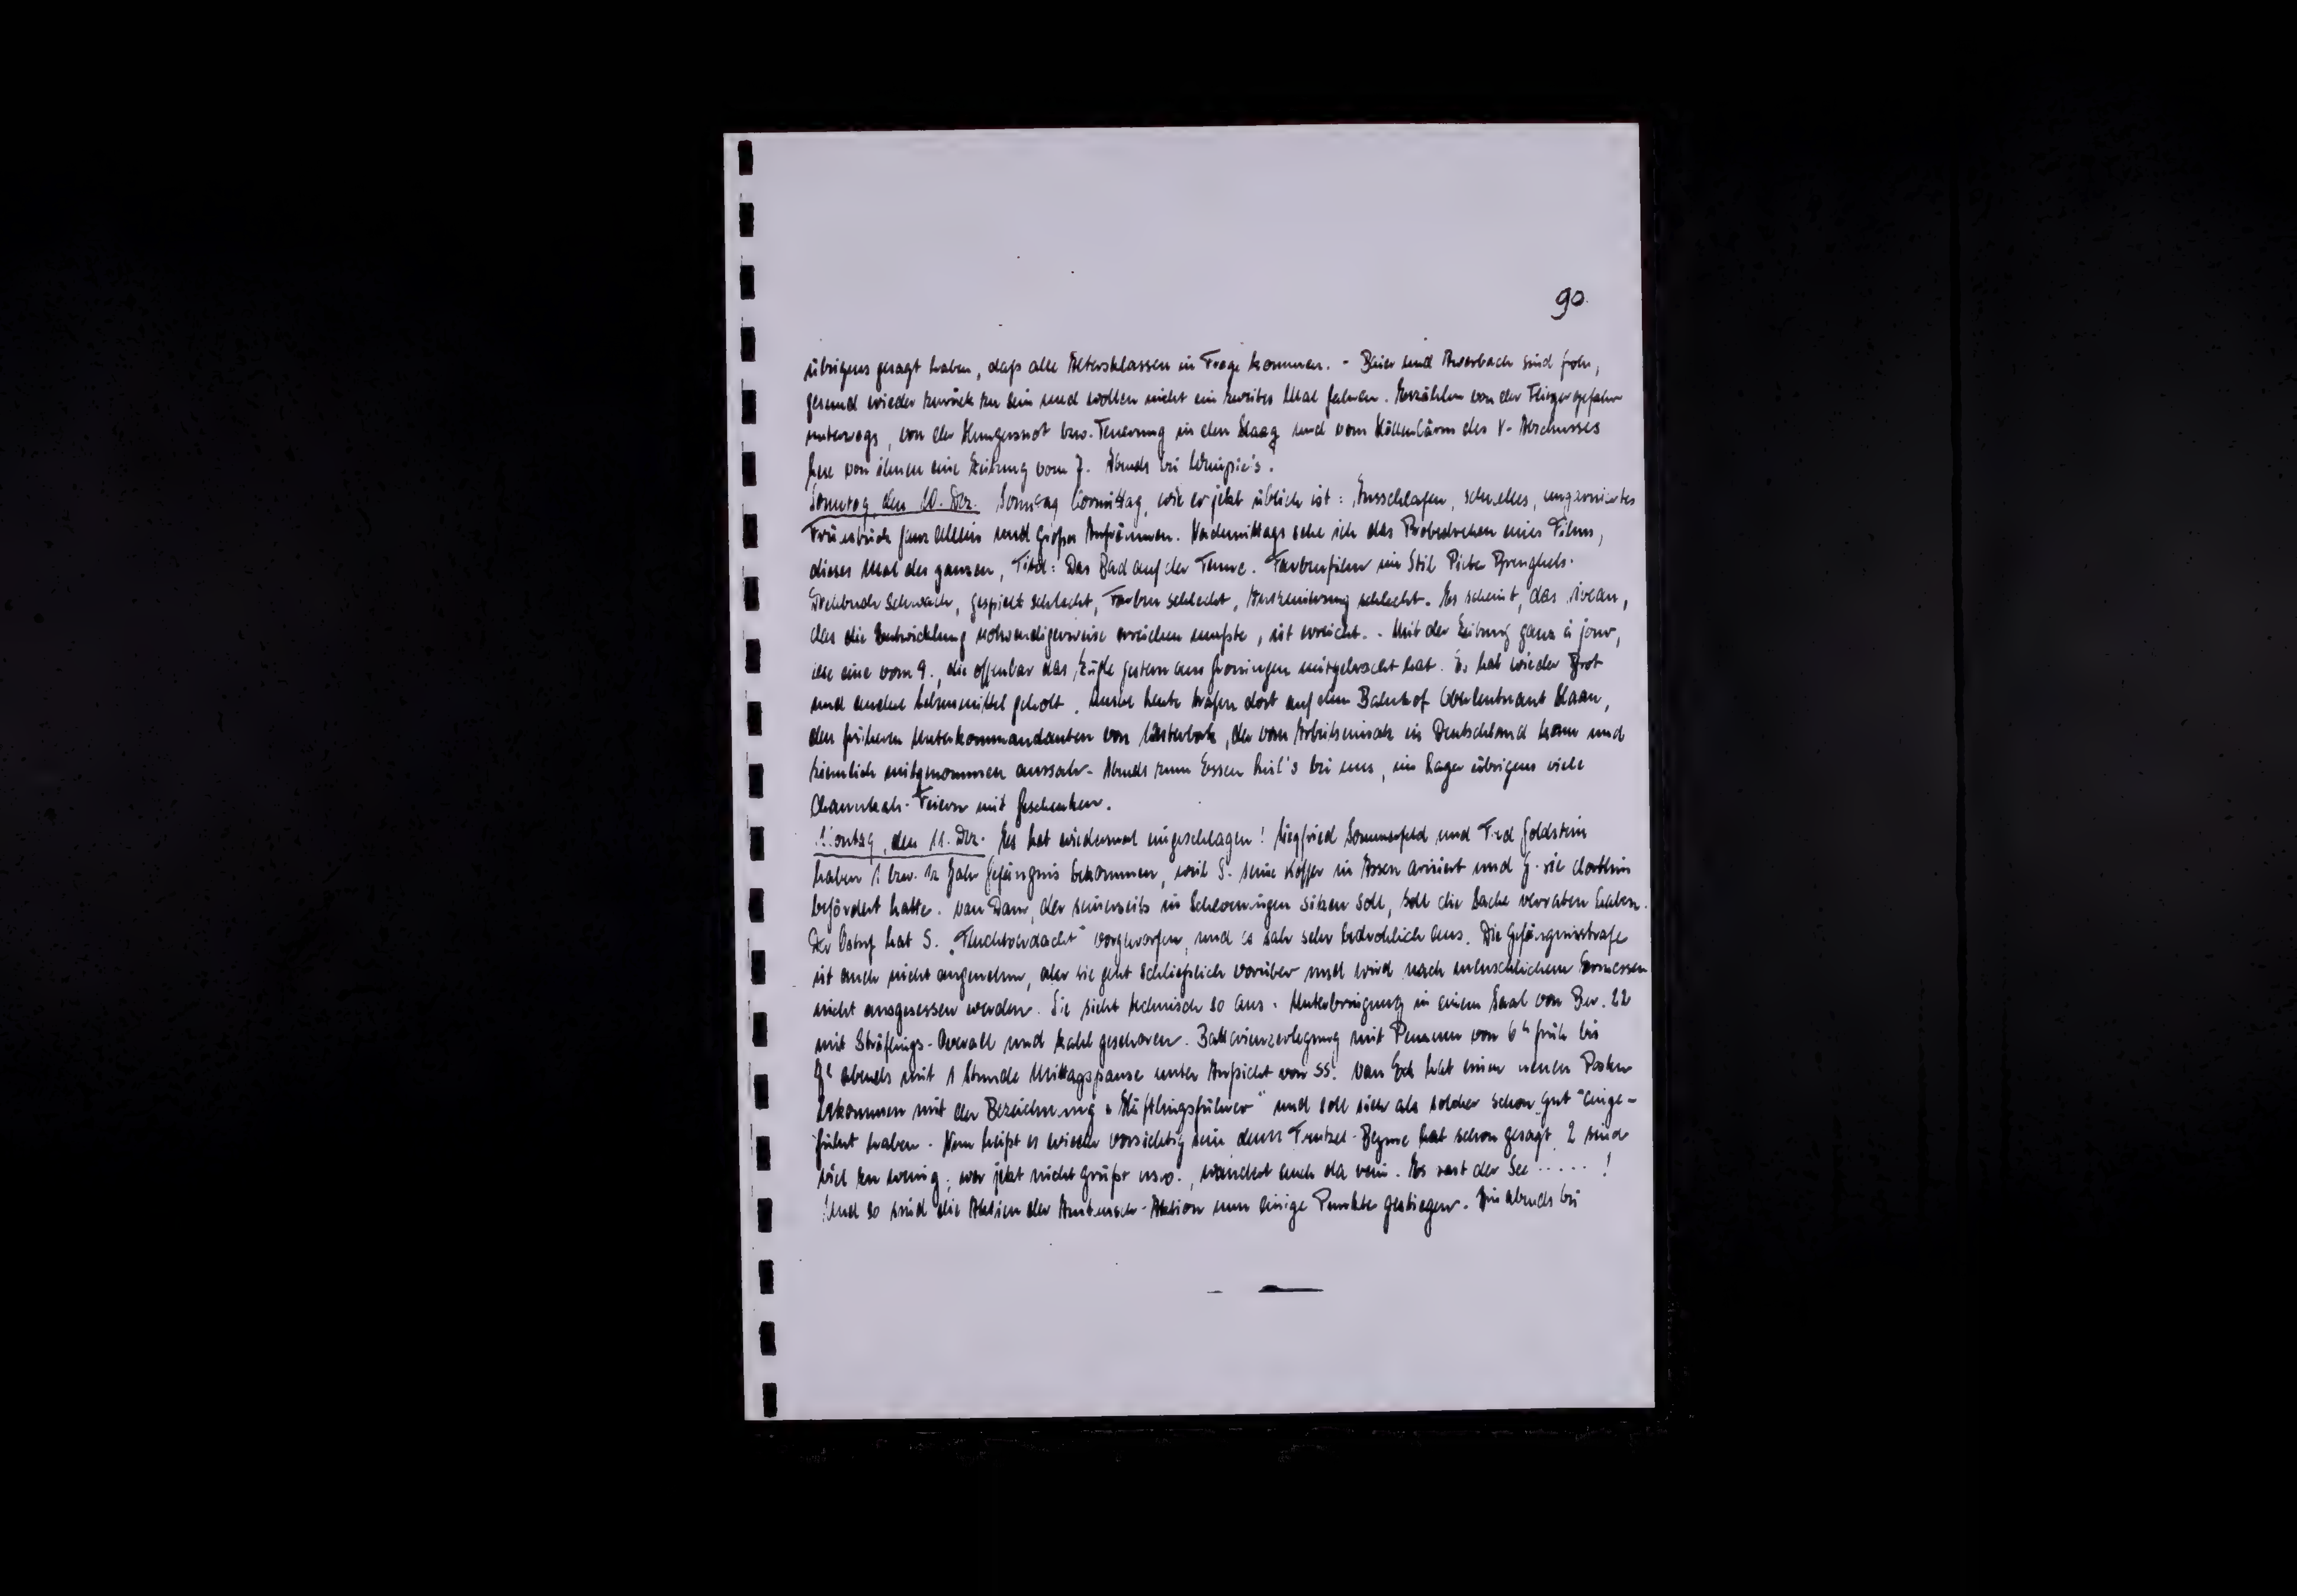 90.
übrigens gesagt haben, daß alle Altersklassen in Frage kommen. - Baier und Auerbach sind froh,
gesund wieder zurück zu sein und wollen nicht ein zweites Mal fahren. Erzählen von der Fliegergefahr
unterwegs, von der Hungersnot bzw. Teuerung in den Haag und vom Höllenlärm des V-Abschusses
von ihnen eine Zeitung vom 7. Abends bei
Sonntag, den 10. Dez. Sonntag Vormittag, wie er jetzt üblich ist: Ausschlafen, schnelles, ungarniertes
Frühstück ganz allein und großes Aufräumen. Nachmittags sehe ich das Probedrehen eines Films,
dieses Mal des ganzen, Titel: Das Bad auf der Tenne. Farbenfilm im Stil Pieter Breughels.
Drehbuch schwach, gespielt schlecht, Farben schlecht, schlecht. Es scheint, das Niveau,
das die Entwicklung notwendigerweise erreichen mußte, ist erreicht. - Mit der Zeitung ganz à jour,
eine vom 9., die offenbar das gestern aus Groningen mitgebracht hat. Es hat wieder Brot
und andere Lebensmittel geholt. heute trafen dort auf dem Bahnhof Oberleutnant Haan,
den früheren Unterkommandanten von Westerbork, der vom Arbeitseinsatz in Deutschland kam und
ziemlich mitgenommen aussah. Abends zum Essen bei uns, im Lager übrigens viele
Channukah-Feiern mit Geschenken.
Montag, den 11. Dez. Es hat wiedermal eingeschlagen! Siegfried Sommerfeld und Fred Goldstein
haben 1 bzw. ½ Jahr Gefängnis bekommen, weil S. seine Koffer in Assen arisiert und G. sie dorthin
befördert hatte. van Dam, der seinerseits in sitzen soll, soll die Sache verraten haben.
Der Ostuf hat S. „Fluchtverdacht" vorgeworfen, und es sah sehr bedrohlich aus. Die Gefängnisstrafe
ist auch nicht angenehm, aber sie geht schließlich vorüber und wird nach menschlichem Ermessen
nicht ausgesessen werden. Sie sieht technisch so aus: Unterbringung in einem Saal von Bar. 22
mit Sträflings-Overall und kahl geschoren. Batterienzerlegung mit von 6 h früh bis
abends mit 1 Stunde Mittagspause unter Aufsicht von SS. van Eck hat einen neuen Posten
bekommen mit der Bezeichnung „Häftlingsführer" und soll sich als solcher schon „gut" einge-
führt haben. Nun heißt es wieder vorsichtig sein denn hat schon gesagt, 2 sind
viel zu wenig; wer jetzt nicht grüßt usw., wandert auch da rein. Es rast der See ..... !
Und so sind die Aktien der Austausch-Aktion nun einige Punkte gestiegen. Bin abends bei